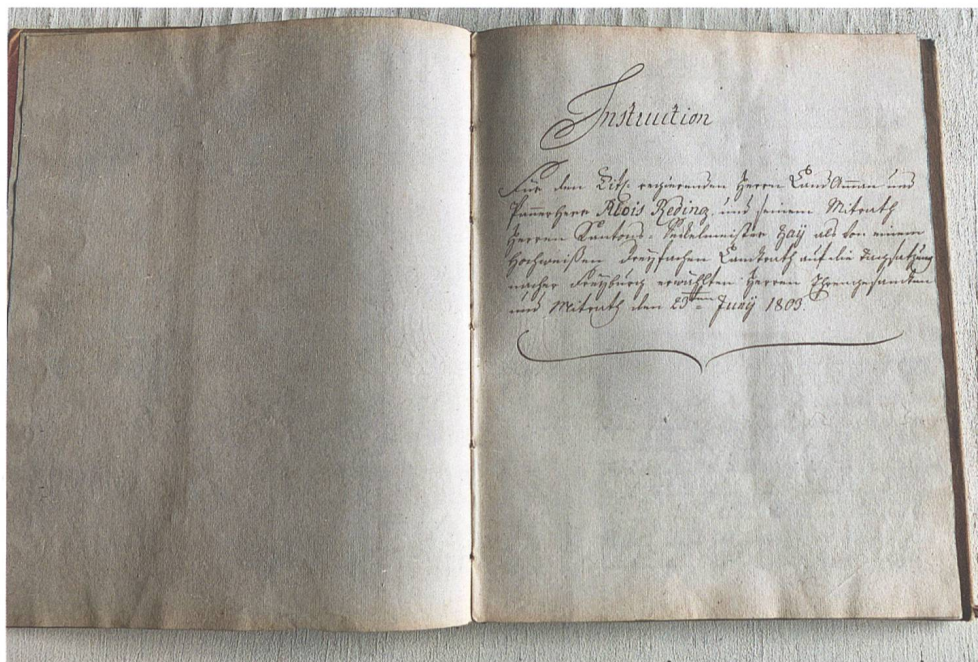 Instruction
Für den Titl. regierenden Herrn LandAmman und
Pannerherr Alois Reding, und seinem Mitrath
Herren Kantons-Seckelmeister Zaÿ als von einem
Hochweißen dreÿfachen Landrath auf die Tagsatzung
nacher Freÿburg erwählten Herren Ehrengesandten
und Mitrath den Junÿ 1803.